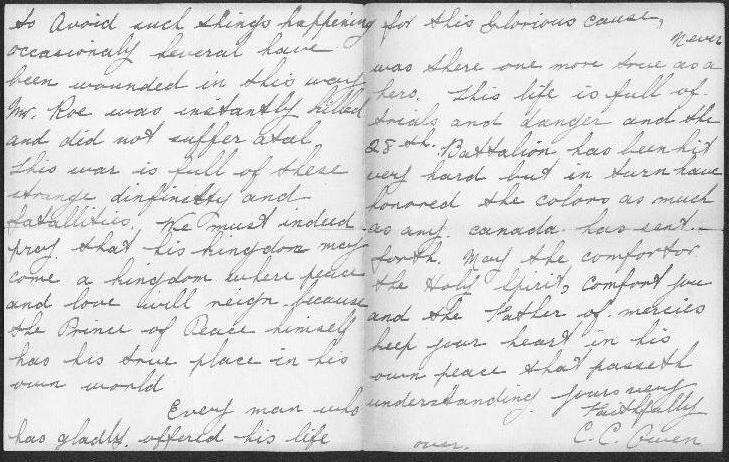 to Avoid such things happening
occasionaly several have
been wounded in this way
Mr. Roe was instantly killed
and did not suffer atal
This war is full of these
strange and
fatallities. We must indeed
pray that his kingdom may
come a kingdom where peace
and love will reign because
the Prince of Peace himself
has his true place in his
own world
Every man who
has gladly offered his life
for this Glorious cause,
Never
was there one more true as a
hero. This life is full of
trials and danger and the
28th. Battalion has been hit
very hard but in turn have
honored the colors as much
as any canada has sent
forth. May the comfortor
the Holy Spirit, comfort you
and the Father of mercies
keep your heart in his
own peace that passeth
understanding yours very
Faithfully
C. C. Owen
over.